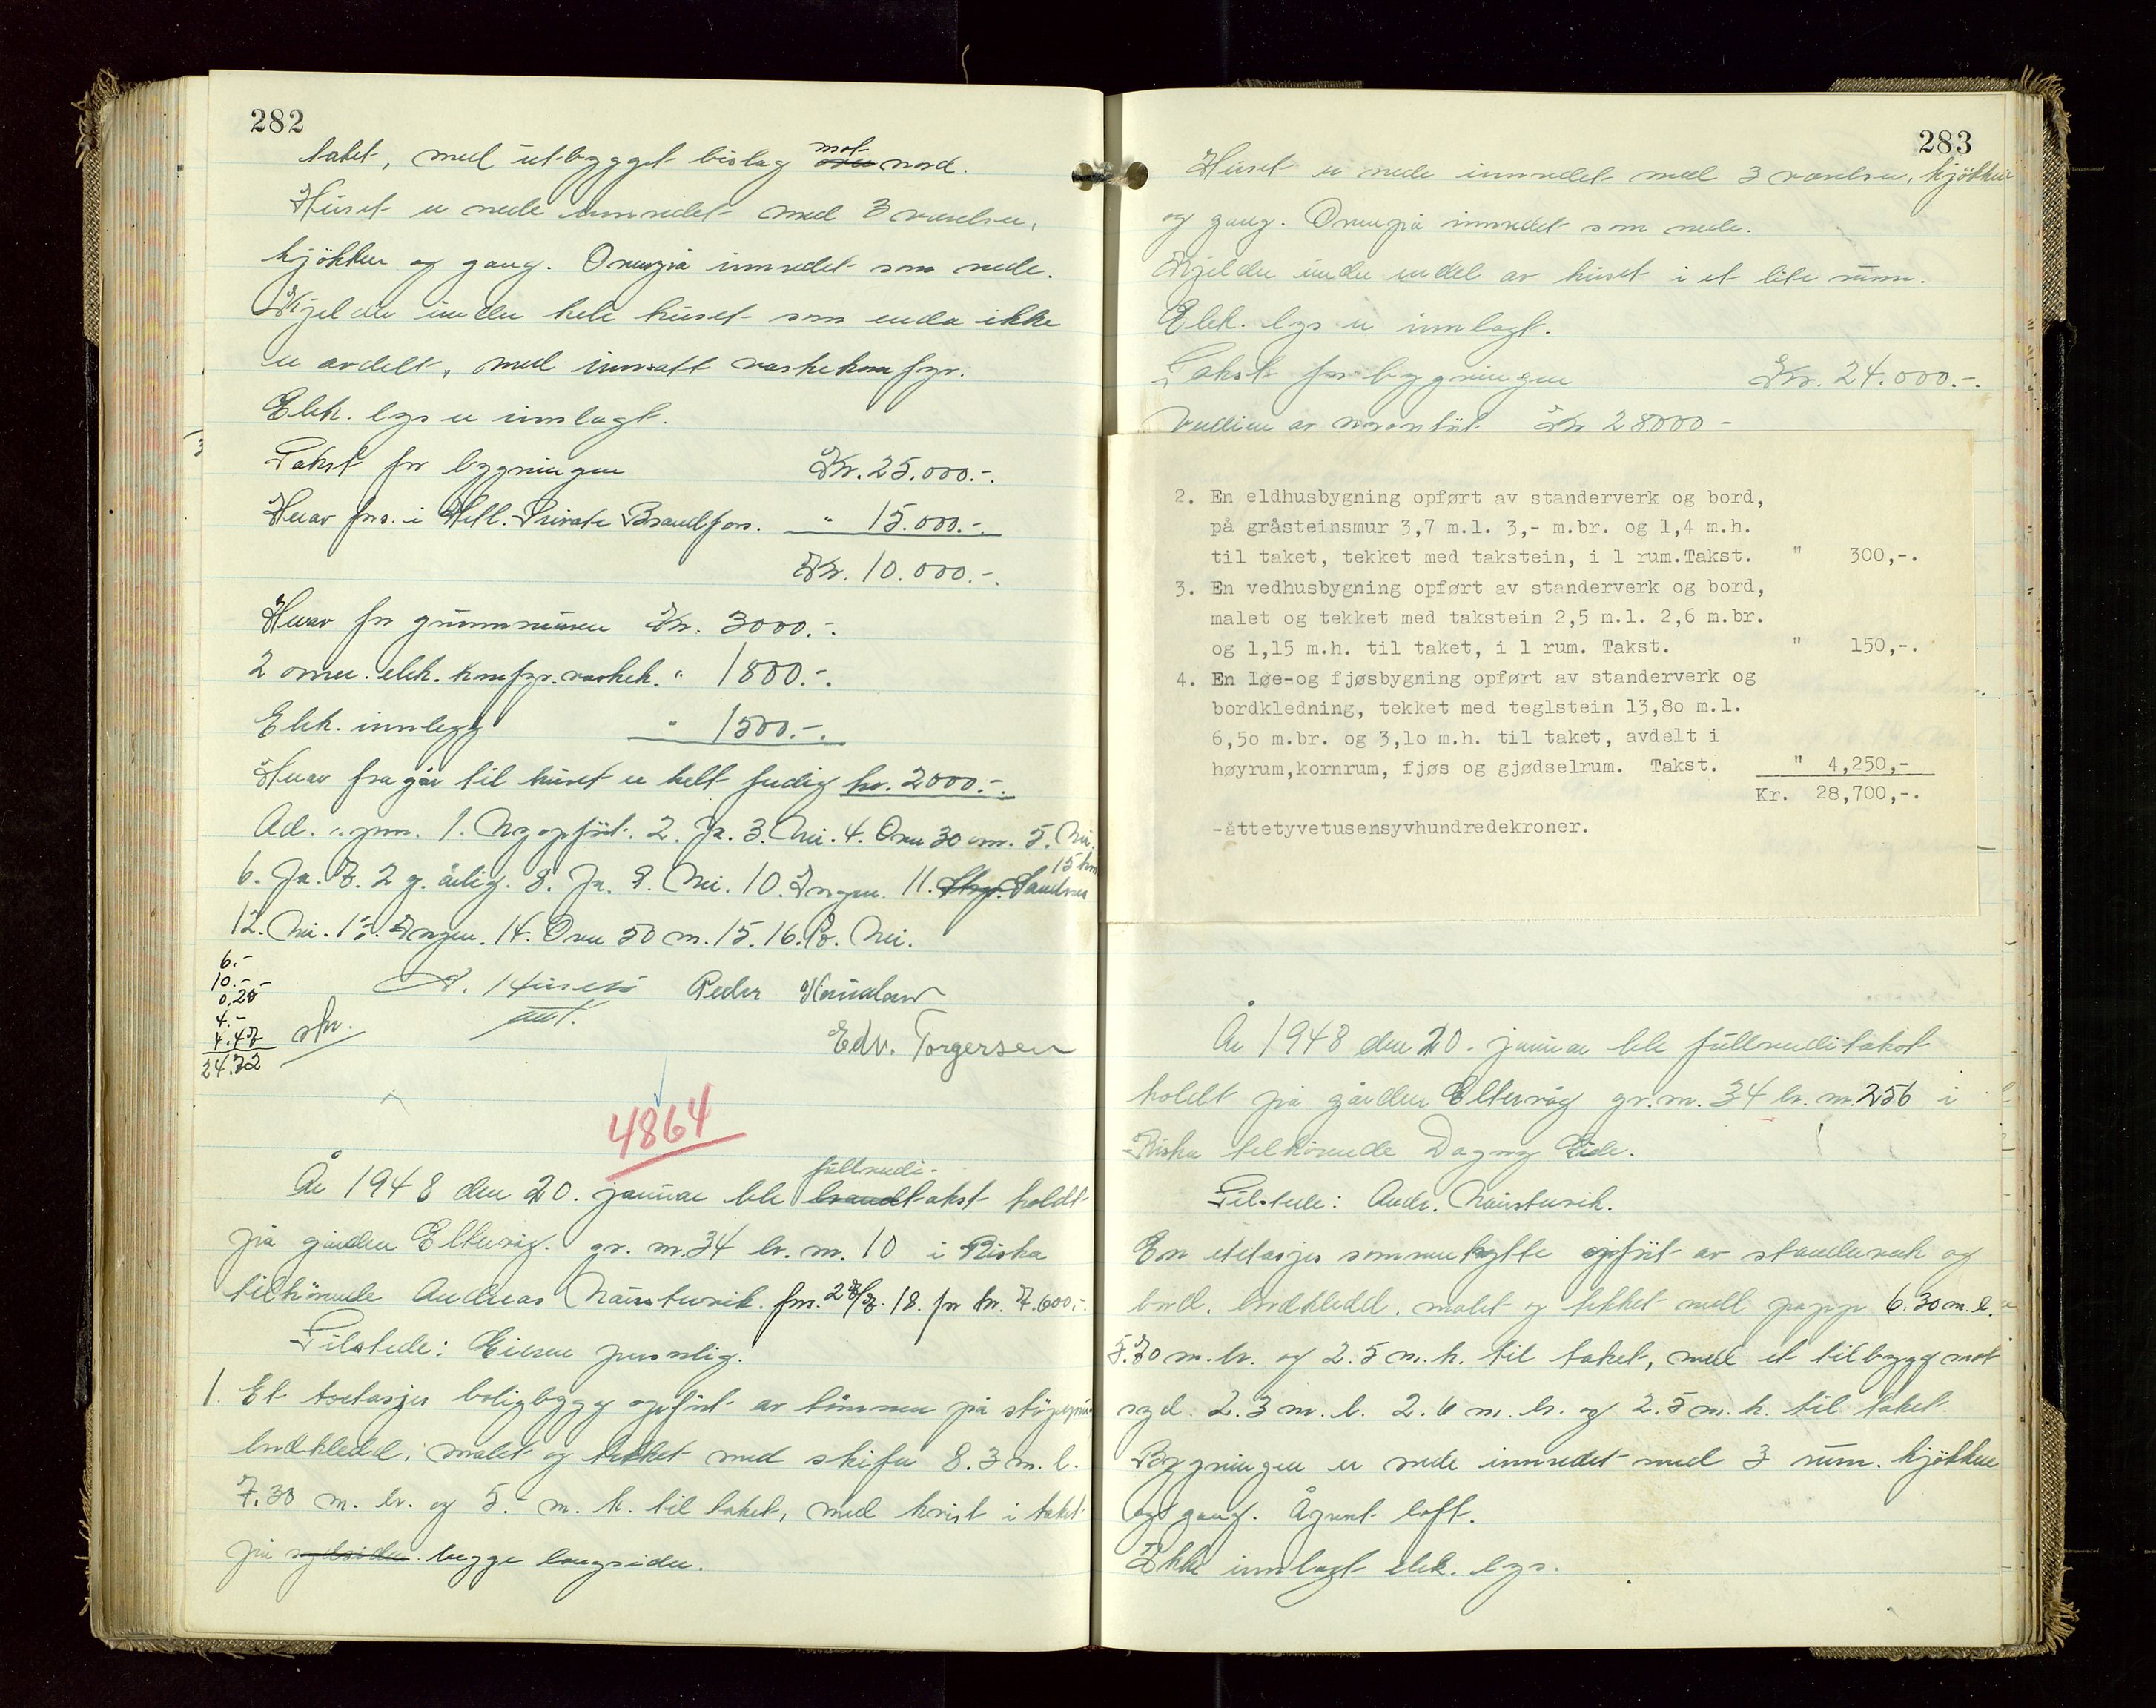 282
taket, med utbygget bislag mot nord.
Huset er nede innredet med 3 værelser,
kjökken og gang. Ovenpå innredet som nede.
Kjelder under hele huset som enda ikke
er avdelt, med innsatt vaskekomfyr.
Elek. lys er innlagt.
Takst for bygningen Kr. 25.000.-.
Herav fors. i Hetl. Private Brandfors. " 15.000.-.
Kr. 10.000.-.
Herav for grunnmuren Kr. 3000.-.
2 omn. elek. komfyr. vaskek. " 1800.-.
Elek. innlegg " 1500.-.
Herav fragår til huset er helt ferdig kr. 2000.-.
Ad. spm. 1. Nyopfört. 2. Ja. 3. Nei. 4. Over 30 cm. 5. Nei.
6. Ja. 7. 2 g. årlig. 8. Ja. 9. Nei. 10. Ingen. 11. Sandnes 15 km
12. Nei. 13. Ingen. 14. Over 50 m. 15. 16. 18. Nei.
6.-
10.-
0.25
4.-
4.47
24.72
Peder
Edv. Torgersen
4864
År 1948 den 20. januar ble fullverdi- takst holdt
på gården Eltervåg. gr. nr. 34 br. nr. 10 i Riska
tilhörende Andreas Naustervik. fors. 28/7. 18. for kr. 7.600.-.
Tilstede: Eieren personlig.
1. Et toetasjes boligbygg opfört av tömmer på
bordkledd, malet og tekket med skifer 8.3 m. l.
7.30 m. br. og 5.- m. h. til taket, med kvist i taket
på sydsiden begge langsider.
283
Huset er nede innredet med 3 værelser, kjökken
og gang. Ovenpå innredet som nede.
Kjelder under endel av huset i et lite rum.
Elek. lys er innlagt.
Takst for bygningen Kr. 24.000.-.
Verdien av Kr 28000 -
2. En eldhusbygning opført av standerverk og bord,
på gråsteinsmur 3,7 m.l. 3,- m.br. og 1,4 m.h.
til taket, tekket med takstein, i 1 rum.Takst. " 300,-.
3. En vedhusbygning opført av standerverk og bord,
malet og tekket med takstein 2,5 m.l. 2,6 m.br.
og 1,15 m.h. til taket, i 1 rum. Takst. " 150,-.
4. En løe-og fjøsbygning opført av standerverk og
bordkledning, tekket med teglstein 13,8o m.l.
6,5o m.br. og 3,1o m.h. til taket, avdelt i
høyrum,kornrum, fjøs og gjødselrum. Takst. " 4,250,-
Kr. 28,700,-.
-åttetyvetusensyvhundredekroner.
År 1948 den 20. januar ble fullverditakst
holdt på gården Eltervåg gr. nr. 34 br. nr. 256 i
Riska tilhörende Dagny Eide.
Tilstede: Andr. Naustervik.
En etetasjes sommerhytte opfört av standerverk og
bord. bordkledd. malet og tekket med papp 6.30 m. l.
5.70 m. br. og 2.5 m. h. til taket, med et tilbygg mot
syd. 2.3 m. l. 2.6 m. br. og 2.5 m. h. til taket.
Bygningen er nede innredet med 3 rum. kjökken
og gang. Åpent loft.
Ikke innlagt elek. lys.